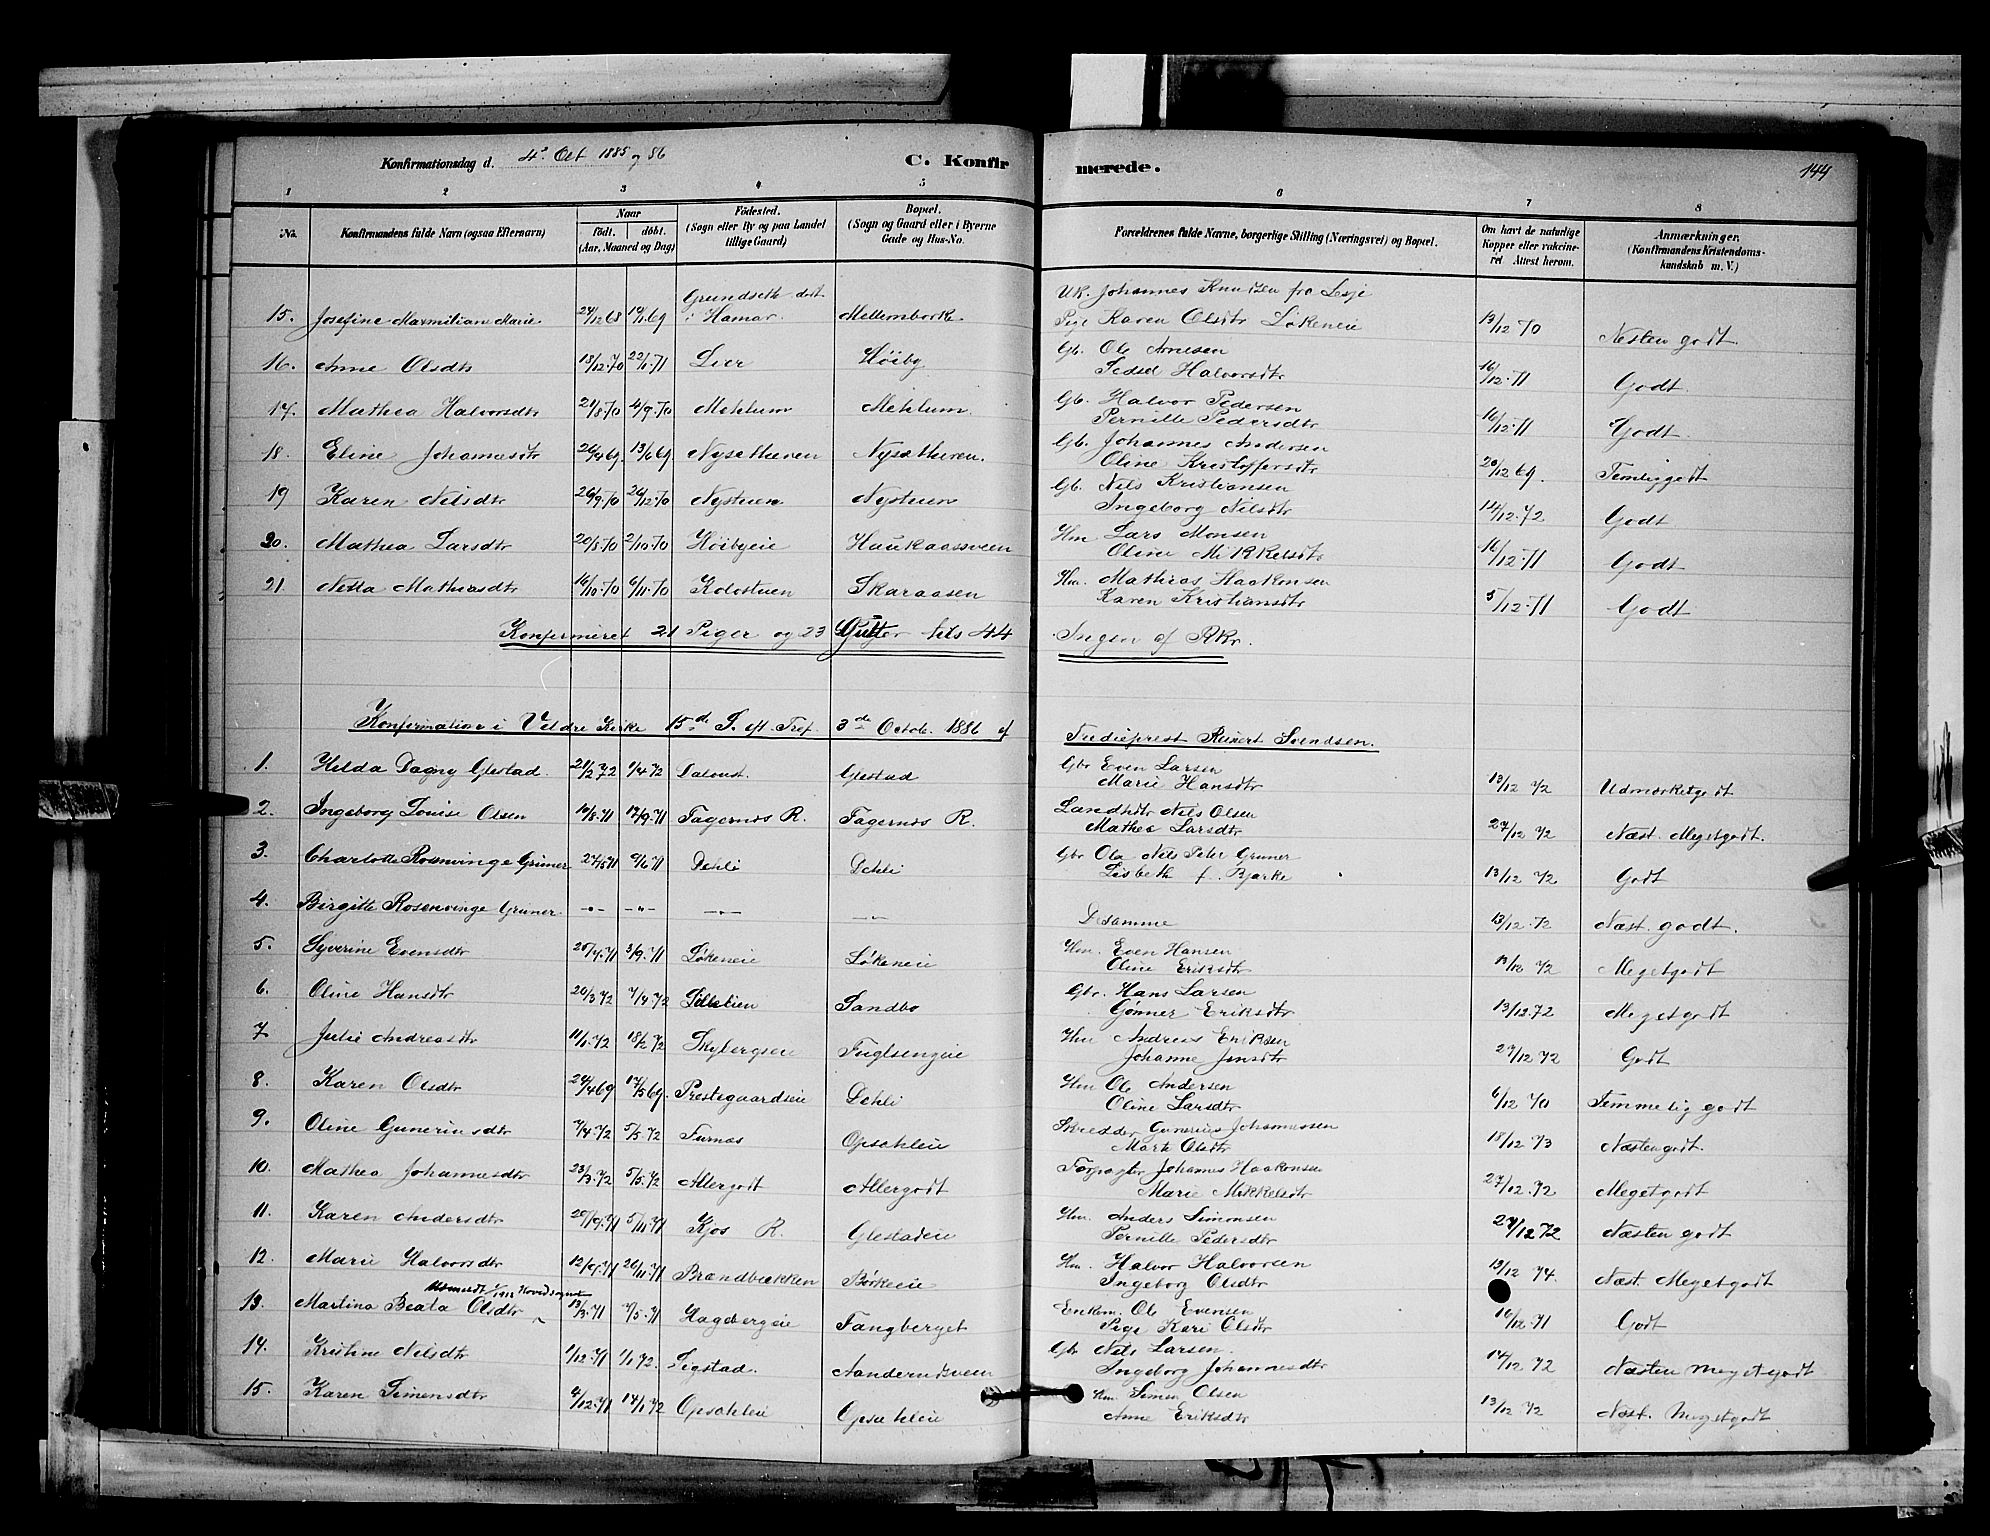 Konfirmationsdag d. 4de Oct 1885 og 86 C. Konfir merede. 144
1 2 3 4 5 6 7 8
No. Konfirmandens fulde Navn (ogsaa Efternavn) Naar født. døbt. (Aar, Maaned og Dag) Fødested. (Sogn eller By og paa Landet tillige Gaard) Bopæl. (Sogn og Gaard eller i Byerne Gade og Hus-No. Forældrenes fulde Navne, borgerlige Stilling (Næringsvei) og Bopæl. Om havt de naturlige Kopper eller vakcineret Attest herom. Anmærkninger. (Konfirmandens Kristendomskundskab m. V.)
Grundseth dist. Uk. Johannes Knudsen fra Lesje
15. Josefine Maxmilian Marie 24/12 68 19/1 69 i Hamar. Mellemborke Pige Karen Olsdtr Løkeneie 13/12 70 Nesten godt.
16. Anne Olsdtr 18/12 70 22/1 71 Lier Høiby Gb. Ole Arnesen
Sedsel Halvorsdtr 16/12 71 Godt.
17. Mathea Halvorsdtr 21/8 70 4/9 70 Mehlum Mehlum. Gb. Halvor Pedersen
Pernille Pedersdtr 16/12 71 Godt.
18. Eline Johannesdtr 26/4 69. 13/6 69. Nysætheren Nysætheren. Gb. Johannes Andersen
Oline Kristoffersdtr 20/12 69. Temlig godt
19 Karen Nilsdtr 26/9 70 26/12 70 Nystuen Nystuen Gb. Nils Kristiansen
Ingeborg Nilsdtr 14/12 72 Godt
20. Mathea Larsdtr 20/8 70 2/10 70 Høibyeie Haukaasveen Hm Lars Monsen
Oline Mikkelsdtr 16/12 71 Godt
21. Netta Mathiasdtr 16/10 70 6/11 70 Kolostuen Skaraasen Hm. Mathias Haakonsen
Karen Kristiansdtr 5/12 71 Godt
Konfirmeret 21 Piger og 23 Gutter tils 44 Ingen af RKr.
Konfirmation i Veldre Kirke 15de S. eft. Tref. 3die Octob. 1886 af Trediepræst Reinert Svendsen.
1. Hilda Dagny Glestad. 21/2 72 1/4 72 Glestad Gbr Even Larsen
Marie Hansdtr 13/12 72 Udmærketgodt
2. Ingeborg Louise Olsen 10/8 71 17/9 71 Fagernæs R. Fagernæs R. Landhdlr Nils Olsen
Mathea Larsdtr 27/12 72 Næst. Megetgodt.
3. Charlotte Rosenvinge Grüner 27/5 71 9/6 71 Dehli Dehli Gbr Ole Nils Peter Gruner
Lisbeth f. Bjerke 13/12 72 Godt
4. Birgitte Rosenvinge Grüner. -"- -"- -"- -"- De samme 13/12 72 Næst. godt.
5. Syverine Evensdtr 25/7 71 3/9 71 Løkeneie Løkeneie Hm. Even Hansen
Oline Eriksdtr 13/12 72 Megetgodt
6. Oline Hansdtr 20/3 72 7/4 72 Lillelien Sandbo Gbr. Hans Larsen
Gønner Eriksdtr 13/12 72 Megetgodt
7 Julie Andreasdtr 11/1 72 18/2 72 Skybergseie Fuglsengeie Hm Andreas Eriksen
Johanne Jensdtr 27/12 72 Godt
8. Karen Olsdtr 24/4 69 17/5 69. Prestegaardseie Dehli Hm Ole Andersen
Oline Larsdtr 6/12 70 Temmelig godt
9. Oline Guneriusdtr 7/4 72 5/5 72 Furnæs Opsahleie Skredder Gunerius Johannessen
Marte Olsdtr 18/12 73 Næstengodt.
10. Mathea Johannesdtr 23/3 72 5/5 72 Allergodt Allergodt Forpagter Johannes Haakonsen
Marie Mikkelsdtr 27/12 72 Megetgodt
11. Karen Andersdtr 29/9 71 5/11 71 Kjos R. Glestadeie Hm. Anders Simonsen
Pernille Pedersdtr 27/12 72 Næsten godt
12. Marie Halvorsdtr 12/9 71 26/11 71 Brændbækken Børkeeie Hm. Halvor Halvorsen
Ingeborg Olsdtr 13/12 74. Næst. Megetgodt
13. Martina Beata Olsdtr 13/3 71 7/5 71 Hagebergeie Fangberget Enkem. Ole Evensen
Pige Kari Olsdtr 16/12 71 Godt
14. Kristine Nilsdtr 1/12 71 1/1 72. Sigstad. Aanderudsveen Gbr Nils Larsen.
Ingeborg Johannesdtr 14/12 72 Næsten Megetgodt
15. Karen Simensdtr 4/12 71 14/1 72 Opsahleie Opsahleie Hm. Simen Olsen
Anne Eriksdtr 13/12 72 Næst. Megetgodt